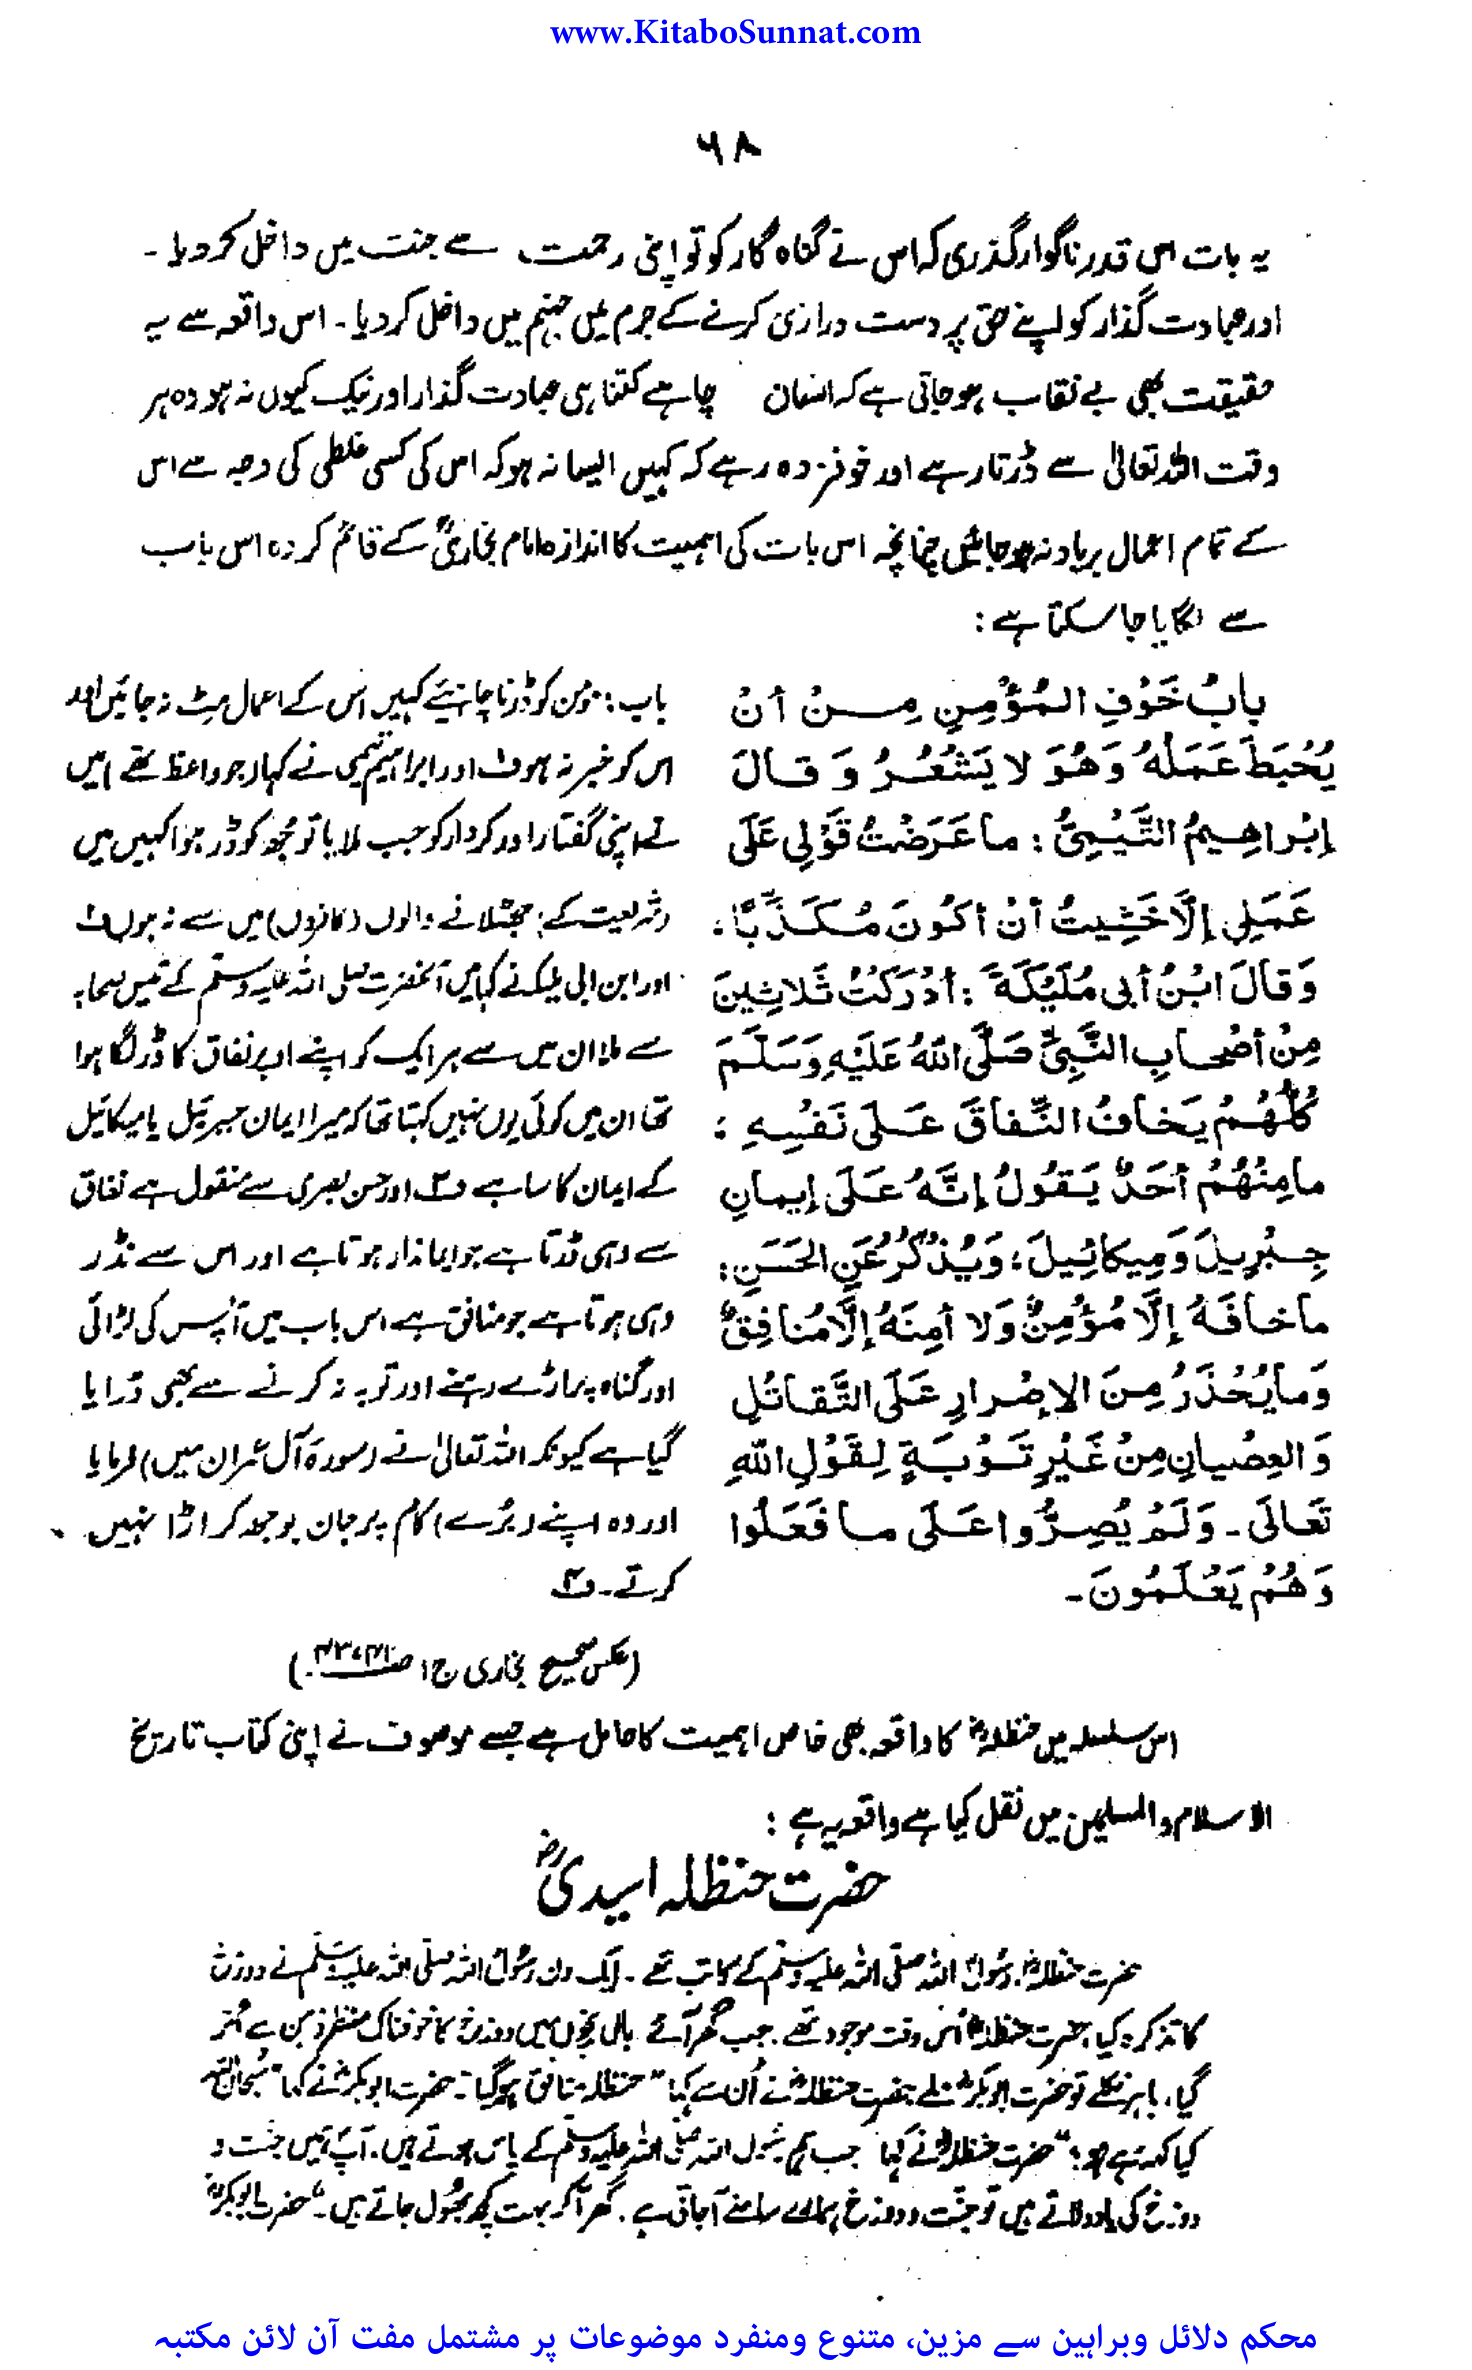 www.KitaboSunnat.com
۶۸
یہ بات اس قدر ناگوار گذری کہ اس نے گناہ گار کو تو اپنی رحمت سے جنت میں داخل کر دیا ۔
اور عبادت گذار کو اپنے حق پر دست درازی کرنے کے جرم میں جہنم میں داخل کر دیا ۔ اس واقعہ سے یہ
حقیقت بھی بے نقاب ہو جاتی ہے کہ انسان چاہے کتنا ہی عبادت گذار اور نیک کیوں نہ ہو وہ ہر
وقت اللہ تعالیٰ سے ڈرتا رہے اور خوفزدہ رہے کہ کہیں ایسا نہ ہو کہ اس کی کسی غلطی کی وجہ سے اس
کے تمام اعمال برباد نہ ہو جائیں چنانچہ اس بات کی اہمیت کا اندازہ امام بخاریؒ کے قائم کردہ اس باب
سے لگایا جا سکتا ہے :
بابُ خَوْفِ المُؤْمِنِ مِنْ أنْ
يُحْبَطَ عَمَلُهُ وَهُوَ لا يَشْعُرُ وَقالَ
إبْراهِيمُ التَّيْمِيُّ : ما عَرَضْتُ قَوْلِي عَلَى
عَمَلِي إلَّا خَشِيتُ أنْ أكُونَ مُكَذِّبًا،
وَقالَ ابْنُ أبي مُلَيْكَةَ : أدْرَكْتُ ثَلاثِينَ
مِنْ أصْحابِ النَّبِيِّ صَلَّى اللهُ عَلَيْهِ وَسَلَّمَ
كُلُّهُمْ يَخافُ النِّفاقَ عَلَى نَفْسِهِ ؛
ما مِنْهُمْ أحَدٌ يَقُولُ إنَّهُ عَلَى إيمانِ
جِبْرِيلَ وَمِيكائِيلَ ؛ وَيُذْكَرُ عَنِ الحَسَنِ :
ما خافَهُ إلَّا مُؤْمِنٌ وَلا أمِنَهُ إلَّا مُنافِقٌ
وَما يُحْذَرُ مِنَ الإصْرارِ عَلَى التَّقاتُلِ
وَالعِصْيانِ مِنْ غَيْرِ تَوْبَةٍ لِقَوْلِ اللهِ
تَعَالَى ۔ وَلَمْ يُصِرُّوا عَلَى ما فَعَلُوا
وَهُمْ يَعْلَمُونَ ۔
باب : مومن کو ڈرنا چاہیئے کہیں اس کے اعمال مٹ نہ جائیں اور
اس کو خبر نہ ہو اور ابراہیم تیمی نے کہا (جو واعظ تھے) میں
نے اپنی گفتار اور کردار کو جب ملایا تو مجھ کو ڈر ہوا کہیں میں
(شریعت کے) جھٹلانے والوں (کافروں) میں سے نہ ہوں
اور ابن ابی ملیکہ نے کہا میں آنحضرت صلی اللہ علیہ وسلم کے تیس صحابہ
سے ملا ان میں سے ہر ایک کو اپنے اوپر نفاق کا ڈر لگا ہوا
تھا ان میں کوئی یوں نہیں کہتا تھا کہ میرا ایمان جبرئیل یا میکائیل
کے ایمان کا سا ہے اور حسن بصری سے منقول ہے نفاق
سے وہی ڈرتا ہے جو ایماندار ہوتا ہے اور اس سے نڈر
وہی ہوتا ہے جو منافق ہے اس باب میں آپس کی لڑائی
اور گناہ پر اڑے رہنے اور توبہ نہ کرنے سے بھی ڈرایا
گیا ہے کیونکہ اللہ تعالیٰ نے (سورۃ آل عمران میں) فرمایا
اور وہ اپنے (برُے) کام پر جان بوجھ کر اڑا نہیں
کرتے ۔
(عکس صحیح بخاری ج۱ )
اس سلسلہ میں حنظلہؓ کا واقعہ بھی خاص اہمیت کا حامل ہے جسے موصوف نے اپنی کتاب تاریخ
الاسلام والمسلمین میں نقل کیا ہے واقعہ یہ ہے :
حضرت حنظلہ اسیدیؓ
حضرت حنظلہؓ رسول اللہ صلی اللہ علیہ وسلم کے کاتب تھے ۔ ایک دن رسول اللہ صلی اللہ علیہ وسلم نے دوزخ
کا تذکرہ کیا، حضرت حنظلہؓ اُس وقت موجود تھے ۔ جب گھر آئے بال بچوں میں دوزخ کا خوفناک منظر ذہن سے اُتر
گیا، باہر نکلے تو حضرت ابو بکرؓ ملے حضرت حنظلہؓ نے اُن سے کہا "حنظلہ منافق ہو گیا"۔ حضرت ابو بکرؓ نے کہا "سُبحان اللہ
کیا کہہ رہے ہو؟" حضرت حنظلہؓ نے کہا جب ہم رسول اللہ صلی اللہ علیہ وسلم کے پاس ہوتے ہیں۔ آپؐ ہمیں جنت و
دوزخ کی یاد دلاتے ہیں تو جنّت و دوزخ ہمارے سامنے آ جاتی ہے ۔ گھر آ کر بہت کچھ بھُول جاتے ہیں ۔" حضرت ابوبکرؓ
محکم دلائل وبراہین سے مزین، متنوع ومنفرد موضوعات پر مشتمل مفت آن لائن مکتبہ